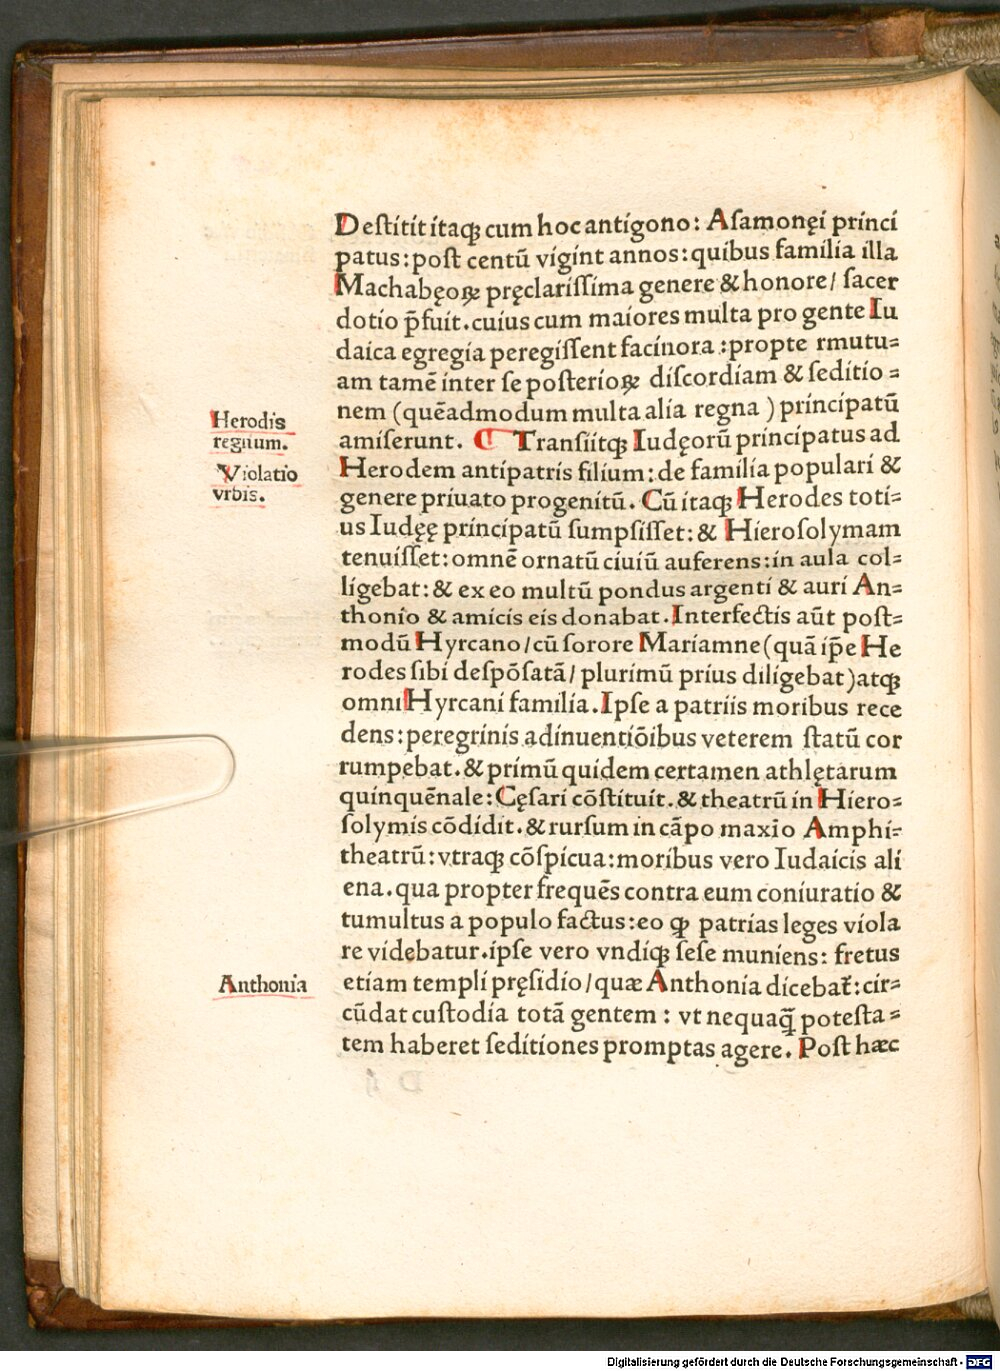 Deſtitit itaqꝫ cum hoc antigono: Aſamonęi princi
patus: poſt centū vigint annos: quibus familia illa
Machabęoꝝ pręclariſſima genere & honore/ ſacer
dotio p̄fuit. cuius cum maiores multa pro gente Iu
daica egregia peregiſſent facinora : propte rmutu=
am tamē inter ſe poſterioꝝ diſcordiam & ſeditio =
nem (quēadmodum multa alia regna ) principatū
Herodis
regnum.
amiſerunt. ¶ Tranſiitqꝫ Iudęorū principatus ad
Violatio
vrbis.
Herodem antipatris filium: de familia populari &
genere priuato progenitū. Cū itaqꝫ Herodes toti=
us Iudęę principatū ſumpſiſſet: & Hieroſolymam
tenuiſſet: omnē ornatū ciuiū auferens: in aula col=
ligebat: & ex eo multū pondus argenti & auri An=
thonio & amicis eis donabat. Interfectis aūt poſt=
modū Hyrcano/ cū ſorore Mariamne (quā ip̄e He
rodes ſibi deſpōſatā/ plurimū prius diligebat) atqꝫ
omni Hyrcani familia. Ipſe a patriis moribus rece
dens: peregrinis adinuentiōibus veterem ſtatū cor
rumpebat. & primū quidem certamen athlętarum
quinquēnale: Cęſari cōſtituit. & theatrū in Hiero=
ſolymis cōdidit. & rurſum in cāpo maxīo Amphi=
theatrū: vtraqꝫ cōſpicua: moribus vero Iudaicis ali
ena. qua propter frequēs contra eum coniuratio &
tumultus a populo factus: eo ꝙ patrias leges viola
re videbatur. ipſe vero vndiqꝫ ſeſe muniens: fretus
Anthonia
etiam templi pręſidio/ quæ Anthonia dicebat̄: cir=
cūdat cuſtodia totā gentem : vt nequaq̄ poteſta =
tem haberet ſeditiones promptas agere. Poſt hæc
Digitalisierung gefördert durch die Deutsche Forschungsgemeinschaft - DFG